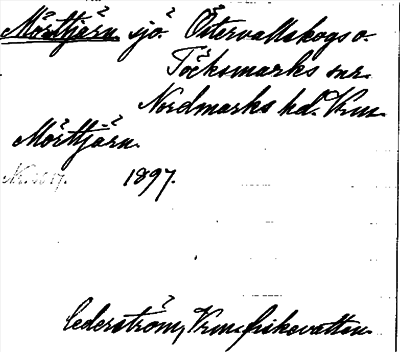 Mörttjärn sjö. Östervallskogs o.
Töcksmarks snr.
Nordmarks hd. Vrm.
Mörttjärn.
1897.
Cederström, Vrm. fiskevatten.